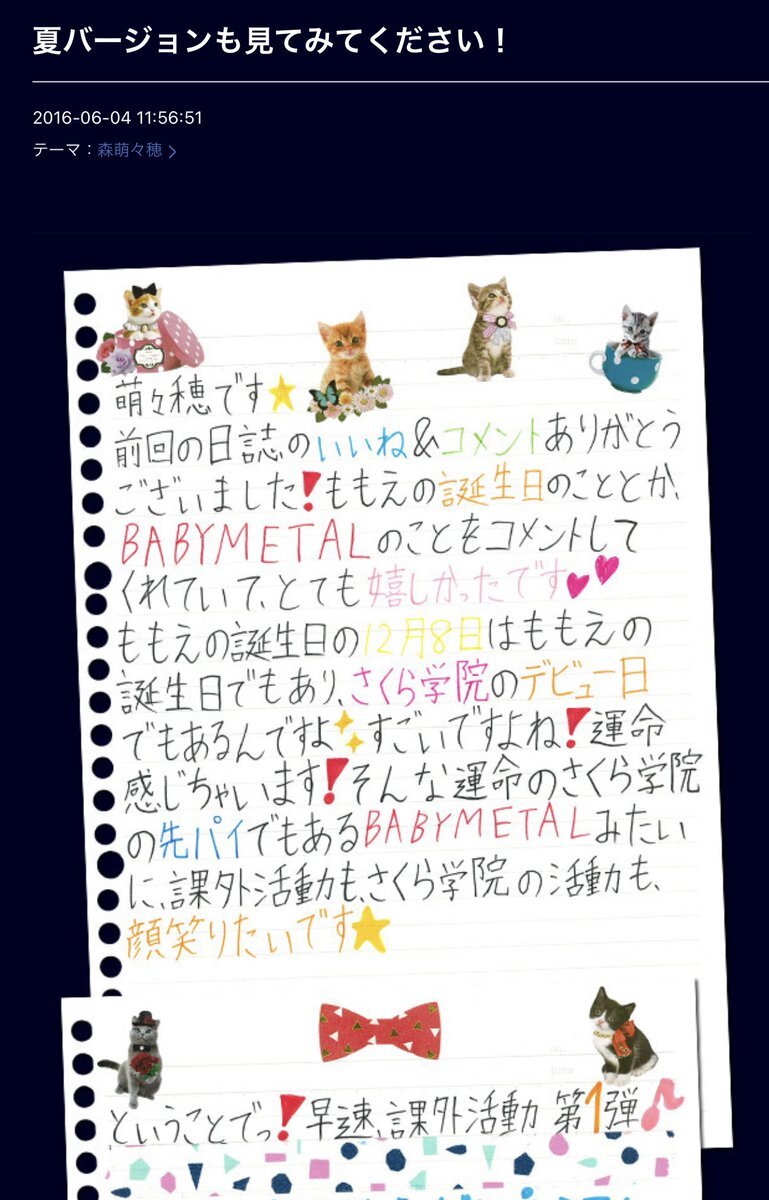 夏バージョンも見てみてください！
2016-06-04 11:56:51
テーマ：森萌々穂
萌々穂です
前回の日誌のいいね&コメントありがとう
ございました！ももえの誕生日のこととか、
BABYMETALのことをコメントして
くれていて、とても嬉しかったです
ももえの誕生日の12月8日はももえの
誕生日でもあり、さくら学院のデビュー日
でもあるんですよ すごいですよね！運命
感じちゃいます！そんな運命のさくら学院
の先パイでもあるBABYMETALみたい
に、課外活動も、さくら学院の活動も、
顔笑りたいです
ということでっ！早速、課外活動 第1弾